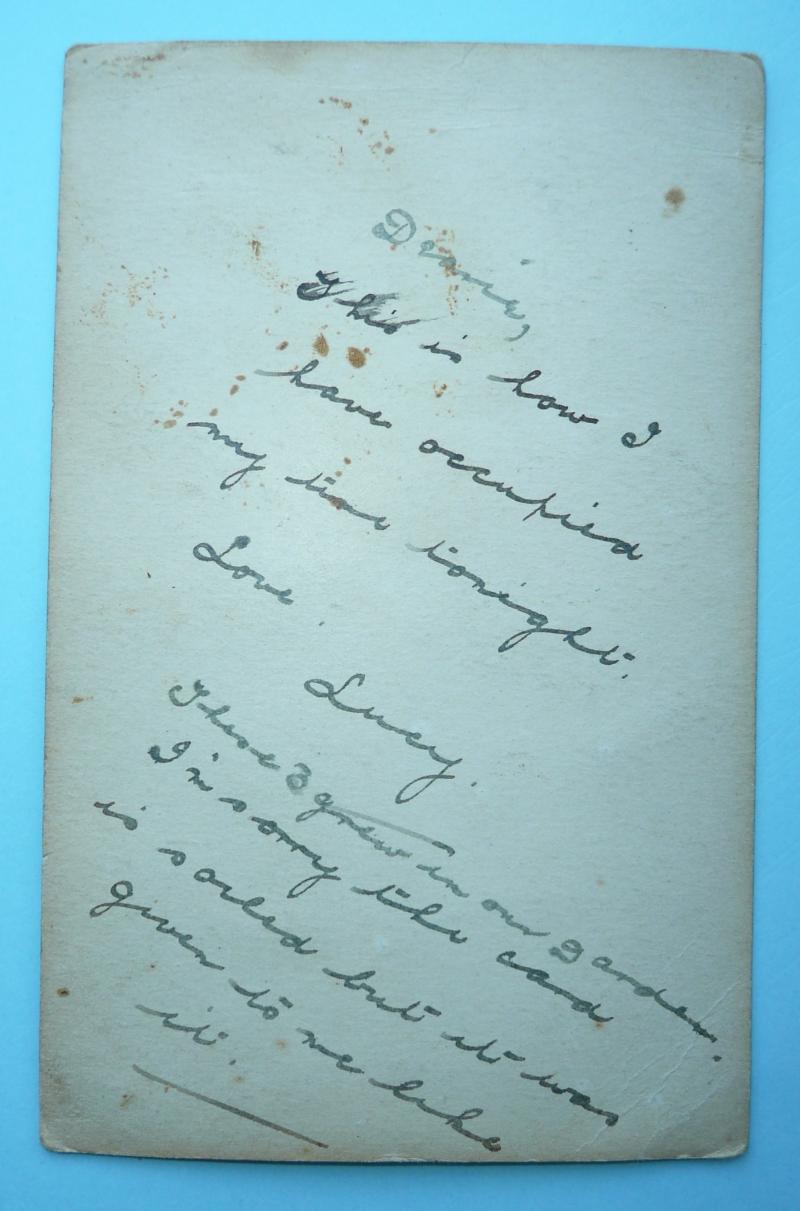 Dearie,
This is how I
have occupied
my time tonight.
Love.
Lucy.
These 3 grew in our garden.
I'm sorry the card
is soiled but it was
given to me like
it.